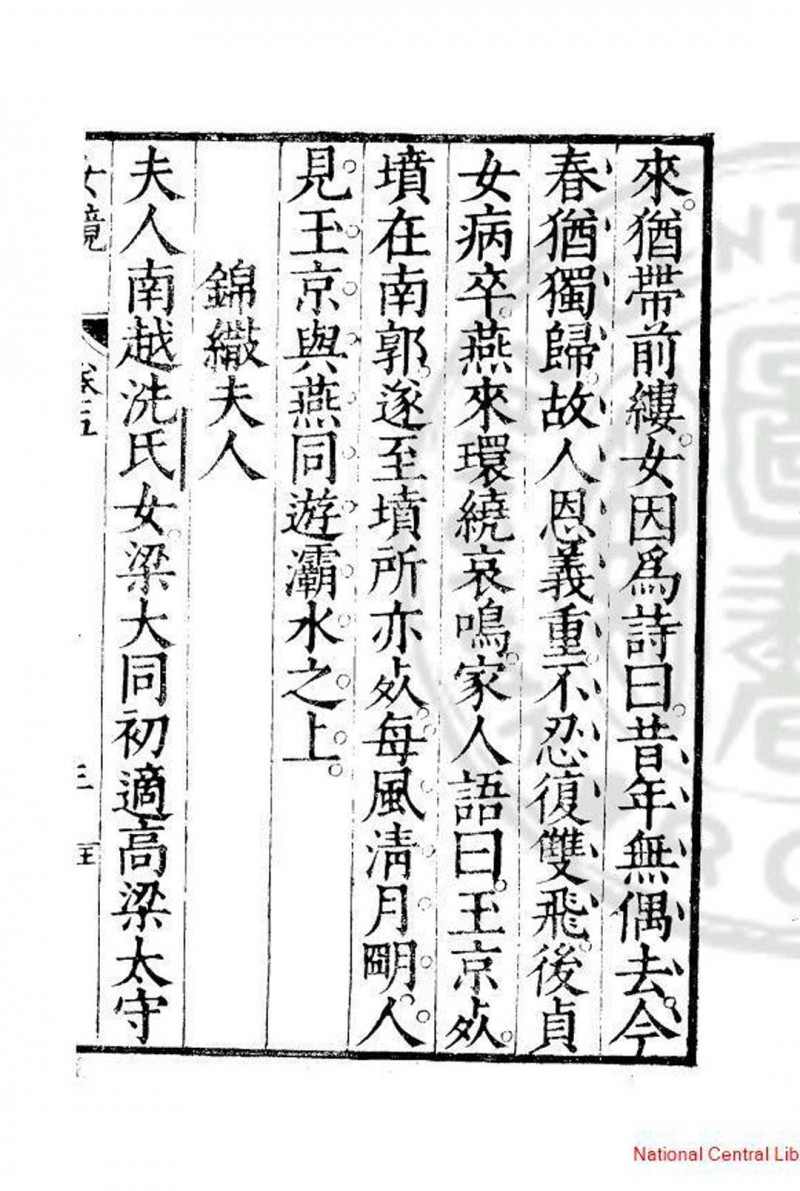 來猶帶前縷女因爲詩曰昔年無偶去今
春猶獨歸故人恩義重不忍復雙飛後貞
女病卒燕來環繞哀鳴家人語曰王京㱔
墳在南郭遂至墳所亦㱔每風淸月朙人
見王京與燕同遊灞水之上
錦繖夫人
夫人南越洗氏女梁大同初適高梁太守
女鏡
卷三
三
National Central Lib